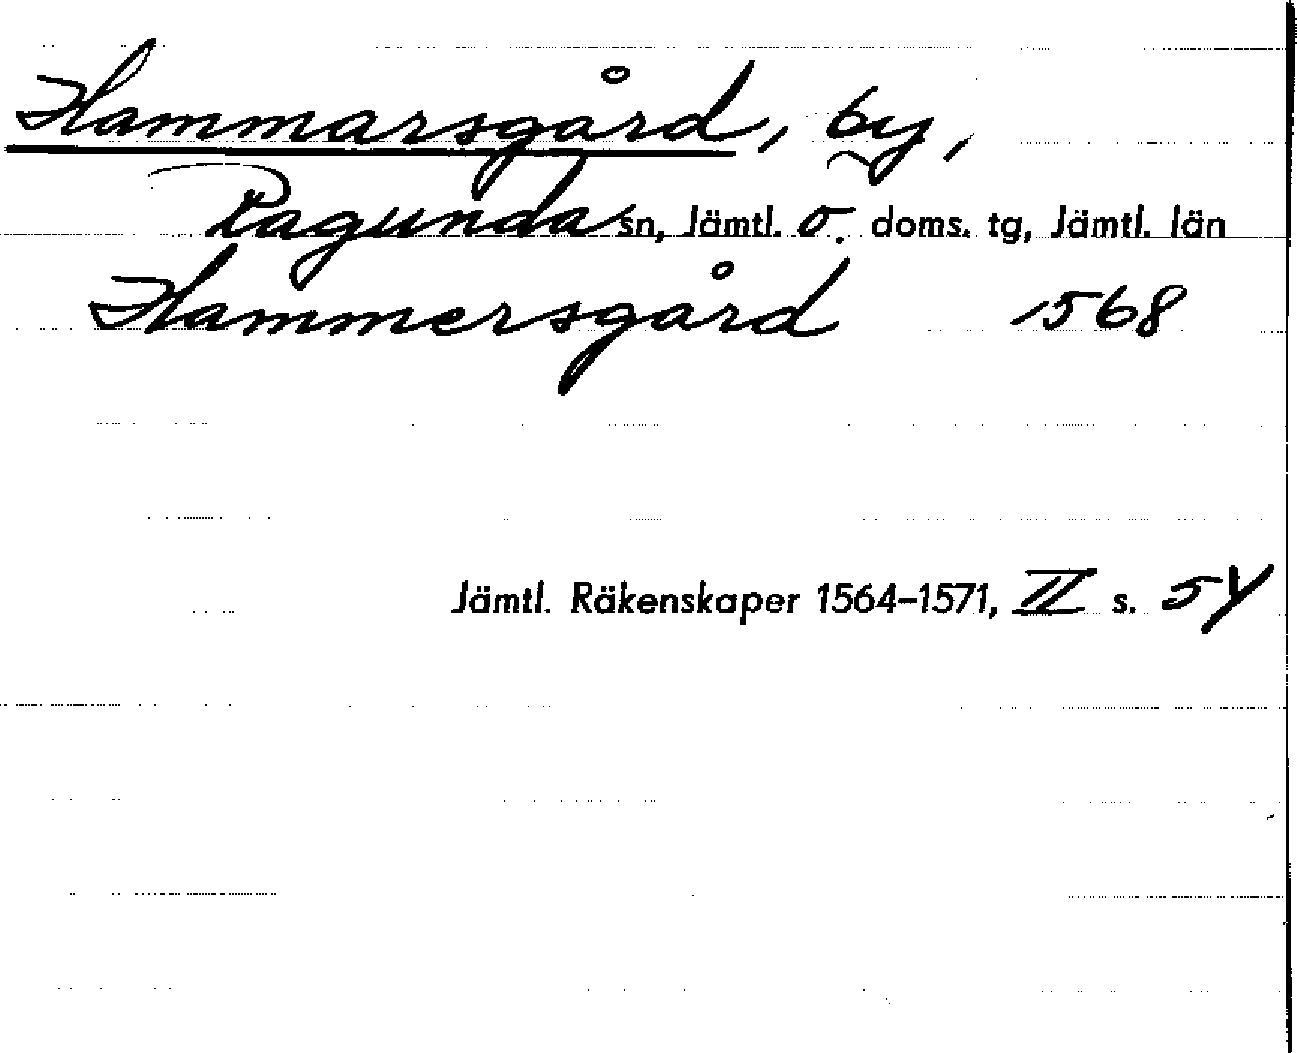 Hammarsgård, by,
Ragunda sn, Jämtl. ö. doms. tg, Jämtl. län
Hammersgård 1568
Jämtl. Räkenskaper 1564-1571, II s. 54